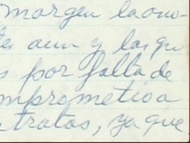 margen la
tes aun y las qu
s por falta de
mprometio a
tratas, ya que